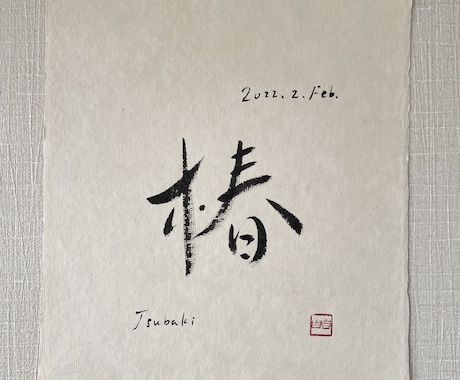 2022.2.Feb.
椿
Tsubaki